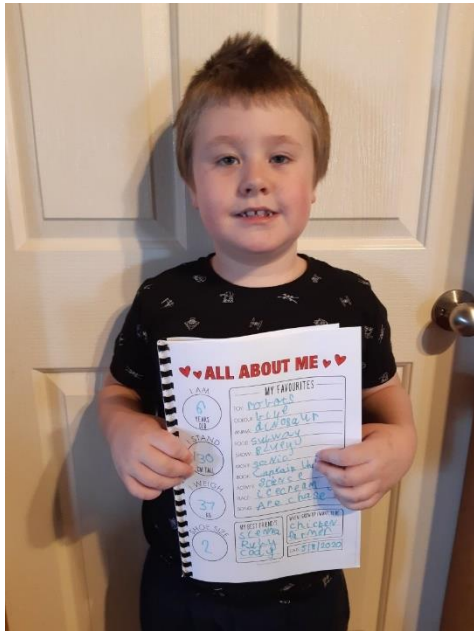 ALL ABOUT ME
I AM
6
YEARS
OLD
I STAND
130
CM TALL
I WEIGH
37
KG
SHOE SIZE
2
MY FAVOURITES
TOY:
COLOUR: blue
ANIMAL: dinosaur
FOOD: subway
SHOW: Bluey
MOVIE: Sonic
BOOK: Captain
Science
icecream
SONG:
MY BEST FRIENDS
Ruby
Cody
WHEN I GROW UP I WANT TO BE
chicken
farmer
DATE: 5/8/2020